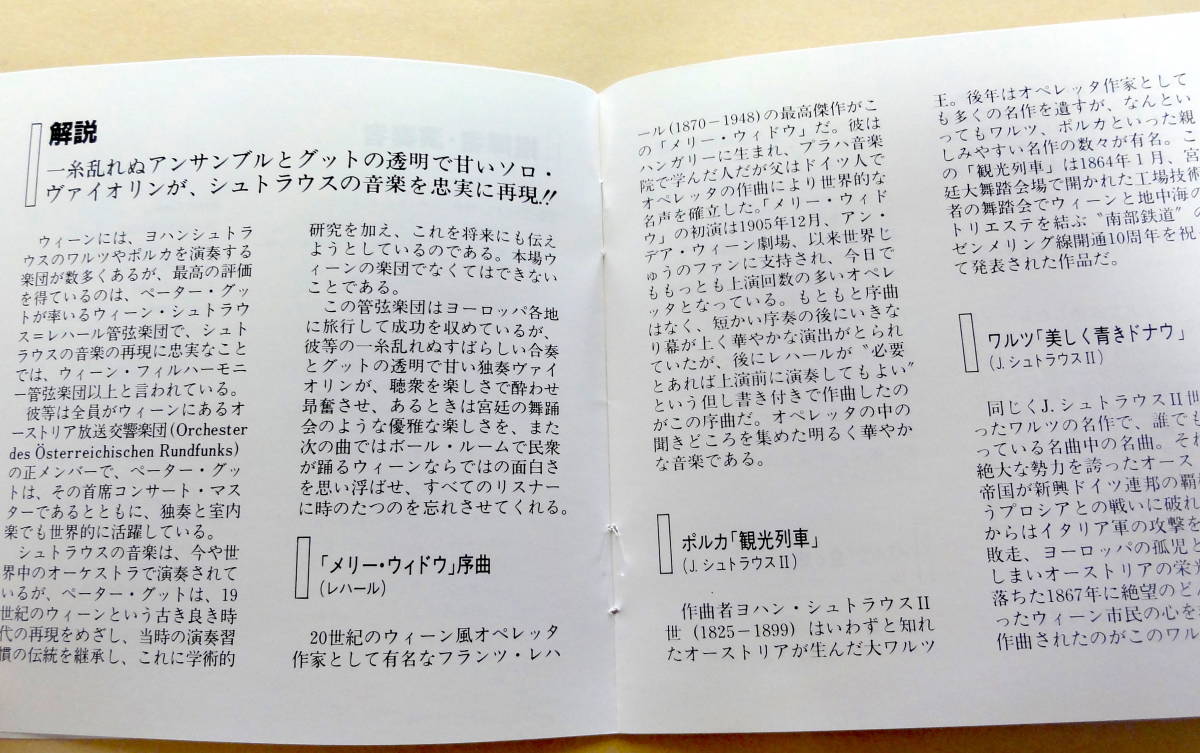 解説
一糸乱れぬアンサンブルとグットの透明で甘いソロ・
ヴァイオリンが、シュトラウスの音楽を忠実に再現!!
ウィーンには、ヨハンシュトラ
ウスのワルツやポルカを演奏する
楽団が数多くあるが、最高の評価
を得ているのは、ペーター・グッ
トが率いるウィーン・シュトラウ
ス=レハール管弦楽団で、シュト
ラウスの音楽の再現に忠実なこと
では、ウィーン・フィルハーモニ
ー管弦楽団以上と言われている。
彼等は全員がウィーンにあるオ
ーストリア放送交響楽団(Orchester
des Österreichischen Rundfunks)
の正メンバーで、ペーター・グッ
トは、その首席コンサート・マス
ターであるとともに、独奏と室内
楽でも世界的に活躍している。
シュトラウスの音楽は、今や世
界中のオーケストラで演奏されて
いるが、ペーター・グットは、19
世紀のウィーンという古き良き時
代の再現をめざし、当時の演奏習
慣の伝統を継承し、これに学術的
研究を加え、これを将来にも伝え
ようとしているのである。本場ウ
ィーンの楽団でなくてはできない
ことである。
この管弦楽団はヨーロッパ各地
に旅行して成功を収めているが、
彼等の一糸乱れぬすばらしい合奏
とグットの透明で甘い独奏ヴァイ
オリンが、聴衆を楽しさで酔わせ
昂奮させ、あるときは宮廷の舞踊
会のような優雅な楽しさを、また
次の曲ではボール・ルームで民衆
が踊るウィーンならではの面白さ
を思い浮ばせ、すべてのリスナー
に時のたつのを忘れさせてくれる。
「メリー・ウィドウ」序曲
(レハール)
20世紀のウィーン風オペレッタ
作家として有名なフランツ・レハ
ール(1870－1948)の最高傑作がこ
の「メリー・ウィドウ」だ。彼は
ハンガリーに生まれ、プラハ音楽
院で学んだ人だが父はドイツ人で
オペレッタの作曲により世界的な
名声を確立した。「メリー・ウィド
ウ」の初演は1905年12月、アン・
デア・ウィーン劇場、以来世界じ
ゅうのファンに支持され、今日で
ももっとも上演回数の多いオペレ
ッタとなっている。もともと序曲
はなく、短かい序奏の後にいきな
り幕が上く華やかな演出がとられ
ていたが、後にレハールが〝必要
とあれば上演前に演奏してもよい〟
という但し書き付きで作曲したの
がこの序曲だ。オペレッタの中の
聞きどころを集めた明るく華やか
な音楽である。
ポルカ「観光列車」
(J. シュトラウスII)
作曲者ヨハン・シュトラウスII
世 (1825－1899) はいわずと知れ
たオーストリアが生んだ大ワルツ
王。後年はオペレッタ作家として
も多くの名作を遺すが、なんとい
ってもワルツ、ポルカといった親
しみやすい名作の数々が有名。こ
の「観光列車」は1864年1月、宮
廷大舞踏会場で開かれた工場技術
者の舞踏会でウィーンと地中海の
トリエステを結ぶ〝南部鉄道〟の
ゼンメリング線開通10周年を祝っ
て発表された作品だ。
ワルツ「美しく青きドナウ」
(J. シュトラウスII)
同じくJ. シュトラウスII世
ったワルツの名作で、誰でも
っている名曲中の名曲。それ
絶大な勢力を誇ったオースト
帝国が新興ドイツ連邦の覇権
うプロシアとの戦いに破れ
からはイタリア軍の攻撃を
敗走、ヨーロッパの孤児と
しまいオーストリアの栄光
落ちた1867年に絶望のどん
ったウィーン市民の心を
作曲されたのがこのワル